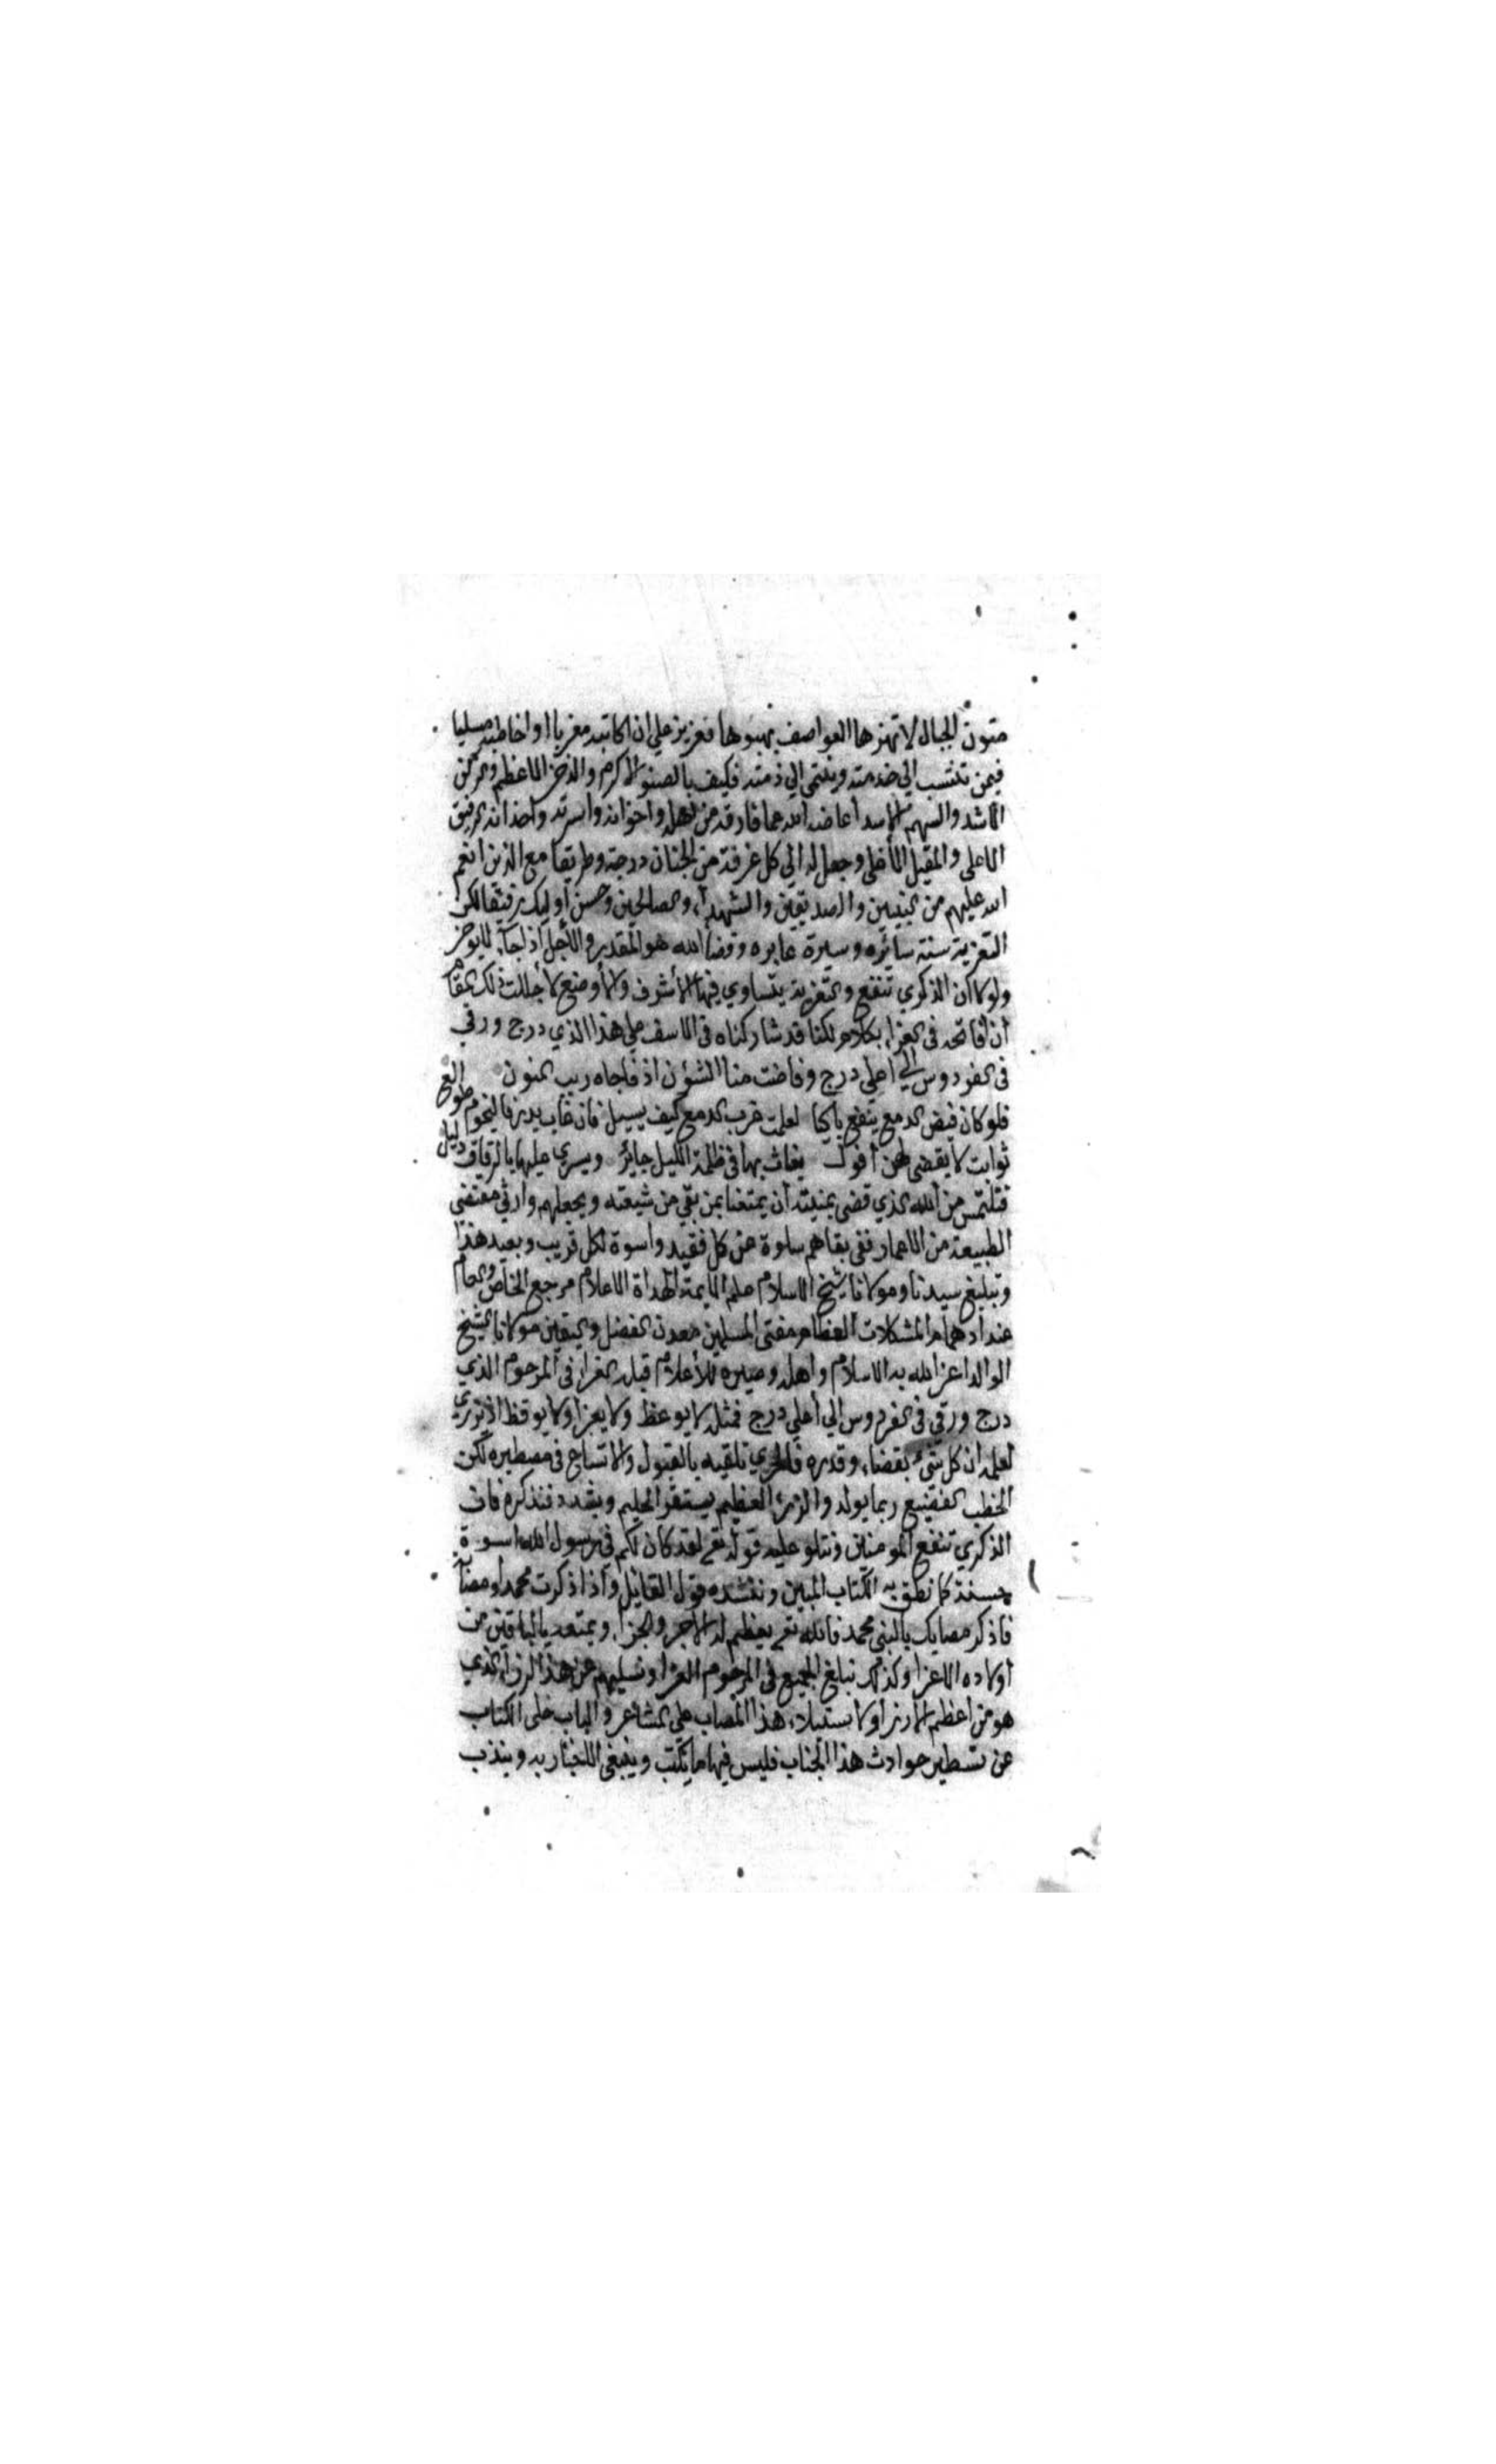 متون الجبال لا تهزها العواصف بهبوها فعزيز علي ان اكاتبه معزيا او اخاطبه مسليا
فيمن تنتسب الي خدمته وينتمي الي ذمته فكيف بالصنو الاكرم والذخر الاعظم والركن
الاشد والسهم الاسد أعاضه الله عما فارقه من اهله واخوانه واسرته واخدانه الرفيق
الاعلى والمقيل الأعلى وجعل له الي كل غرفة من الجنان درجة وطريقا مع الذين انعم
الله عليهم من النبيين والصديقين والشهدآء والصالحين وحسن أوليك رفيقا لكن
التعزية سنة سائره وسيرة عابره وقضاالله هو المقدر والأجل اذا جآء لا يوخر
ولولا ان الذكري تنفع والتعزية يتساوي فيها الأشرف والأوضع لأجللت ذلك المقام
أن أفاتحه في العزاء بكلام لكنا قد شاركناه في الاسف علي هذا الذي درج ورقي
في الفردوس الي اعلي درج وفاضت منا الشؤن اذ فاجاه ريب المنون
فلو كان فيض الدمع ينفع باكيا لعلمت غرب الدمع كيف يسيل فان غاب بدر فالنجوم طوالع
ثوابت لا يقضى لهن أفول يغاث بها في ظلمة الليل جايز ويسري عليها بالرقاق دليل
فنلتمس من الله الذي قضى بمنيته أن يمتعنا بمن بقي من شيعته ويجعلهم وارثي مقتضي
الطبيعة من الاعمار ففي بقاهم سلوة عن كل فقيد واسوة لكل قريب وبعيد هذا
وتبليغ سيدنا ومولانا شيخ الاسلام علم الايمة الهداة الاعلام مرجع الخاص والعام
عند ادهمام المشكلات العظام مفتى المسلمين معدن الفضل واليقين مولانا الشيخ
الوالد اعز الله به الاسلام واهله وصيره للأعلام قبله العزا في المرحوم الذي
درج ورقي في الفردوس الي أعلي درج فمثله لا يوعظ ولا يعزا ولا يوقظ
لعلمه ان كل شيء بقضاء وقدره فالحري تلقيه بالقبول والاتساع في مصطبره لكن
الخطب الفضيع ربما يولد والرزء العظيم يستفز الحليم ويشدد فنذكره فان
الذكري تنفع المومنين ونتلو عليه قوله تع لقد كان لكم في رسول الله اسوة
حسنة كما نطق به الكتاب المبين وننشده قول القايل وأذا ذكرت محمدا ومصابه
فاذكر مصابك بالنبي محمد فالله تع يعظم له الأجر والجزاء ويمتعه بالباقين من
أولاده الاعزا وكذلك نبلغ الجميع في المرحوم العزا ونسليهم عن هذا الرزء الذي
هو من أعظم الارزا ولا ستيلاء هذا المصاب علي المشاعر والباب على الكتاب
عن تسطير حوادث هذا الجناب فليس فيها ما يكتب وينبغي الاخبار به ويندب